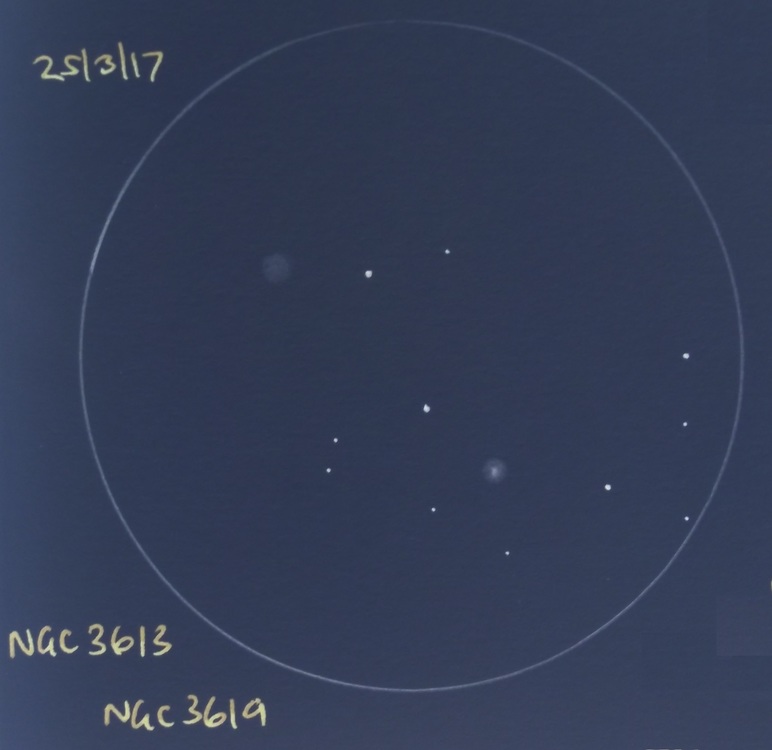 25/3/17
NGC 3613
NGC 3619